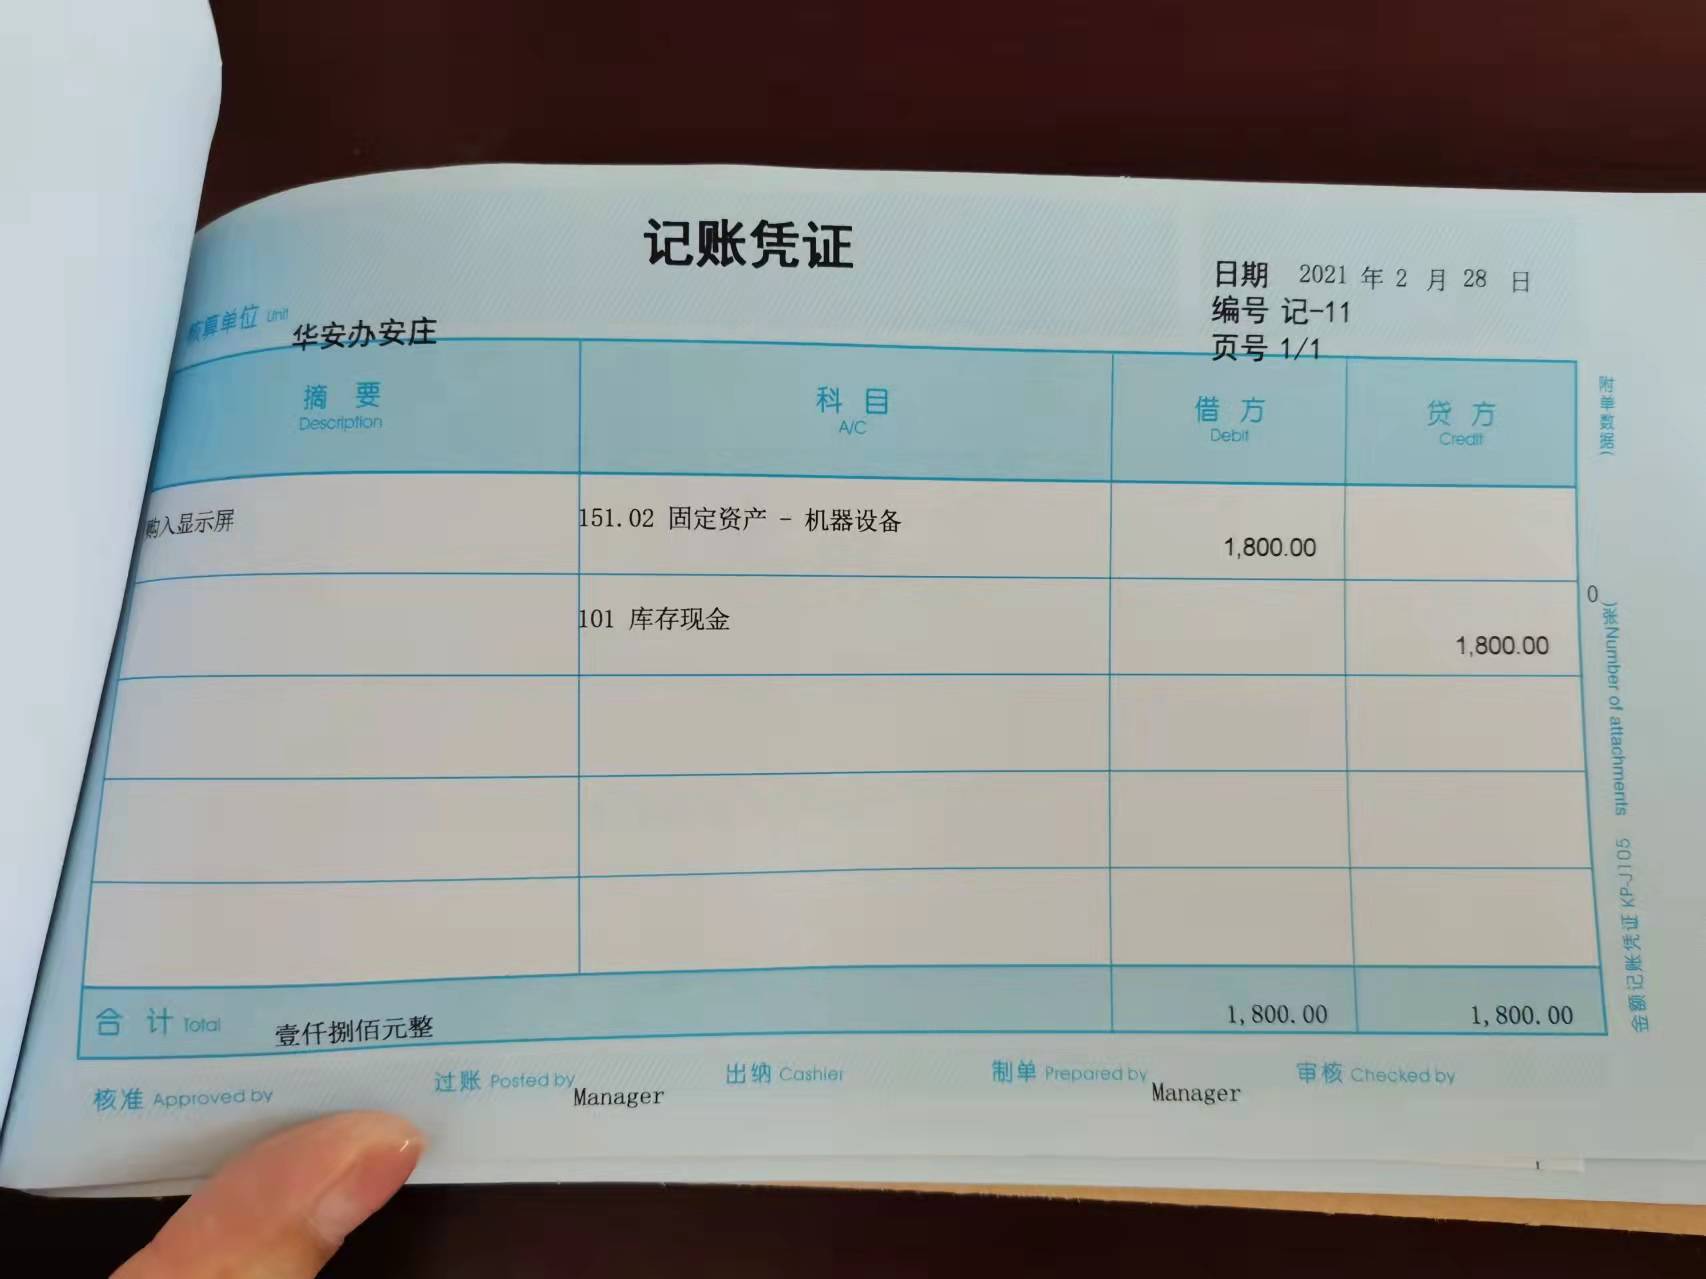 记账凭证
日期 2021 年 2 月 28 日
编号 记-11
页号 1/1
核算单位 Unit 华安办安庄
摘要 科目 借方 贷方
Description A/C Debit Credit
购入显示屏 151.02 固定资产 - 机器设备 1,800.00
101 库存现金 1,800.00
合计 Total 壹仟捌佰元整 1,800.00 1,800.00
核准 Approved by 过账 Posted by Manager 出纳 Cashier 制单 Prepared by Manager 审核 Checked by
附单数据( 0 )张 Number of attachments
金额记账凭证 KP-J105